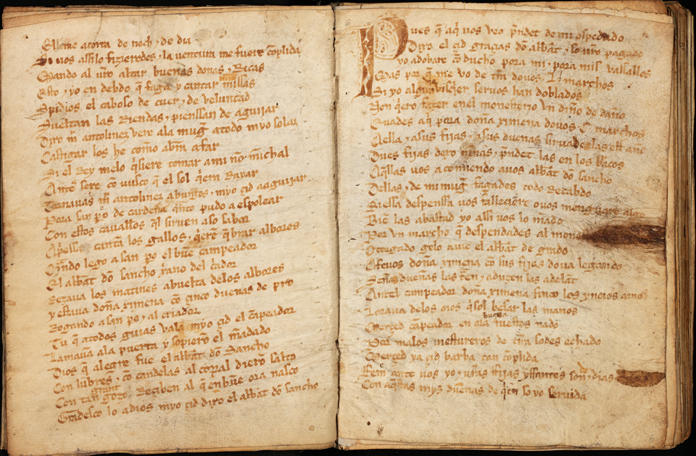 Ella me acorra de noch & de dia
Si uos assi lo fizieredes & la uentura me fuere cõplida
Mando al ũro altar buenas donas & Ricas
Esto & yo en debdo q̃ faga y cantar mill missas
Spidios el caboso de cuer & de veluntad
Sueltan las Riendas & pienssan de aguijar
Dixo m̃ antolinez vere ala mug̃ atodo myo solaz
Castigar los he com̃o abrã afar
Si el Rey melo q̃siere tomar ami nõ minchal
Antes sere cõ uusco q̃ el sol q̃era Rayar
Tornauas m̃ antolinez aburgos & myo çid aaguijar
Pora san po de cardeña q̃nto pudo a espolear
Con estos cauallos q̃l siruen aso sabor
Apriessa cantã los gallos & q̃erẽ q̃brar albores
Q̃ndo lego a san po el buẽ campeador
El abbat dõ sancho xp̃iano del c̃ador
Rezaua los matines abuelta delos albores
Y estaua doña ximena cõ çinco dueñas de pro
Rogando a san po & al criador
Tu q̃ atodos guias val a myo çid el cãpeador
Lamauã ala puerta y sopierõ el mãdado
Dios q̃ alegre fue el abbat dõ sancho
Con lũbres & cõ candelas al corral dierõ salto
Con tan grant gozo Reçiben al q̃ en buẽ ora nasco
Gradesco lo adios myo çid dixo el abbat dõ sancho
Pues q̃ aq̃ uos veo p̃ndet de mi ospedado
Dixo el çid graçias dõ abbat & so ũro pagado
yo adobare cõducho pora mi & pora mis vassallos
Mas por q̃ me vo de tr̃ra douos .L. marchos
Si yo algũ visq̃er seruos han doblados
Non q̃ero fazer en el monesterio vn dĩo de daño
Euades aq̃ pora doña ximena douos .C. marchos
Aella & asus fijas & asus dueñas siruades las est año
Dues fijas dexo niñas & p̃ndet las en los braços
Aq̃llas uos acomiendo auos abbat dõ sancho
Dellas & de mi mug̃ fagades todo Recabdo
Si essa despenssa uos falleçiere o uos menguare algo
Biẽ las abastad yo assi uos lo mãdo
Por vn marcho q̃ despendades al monesterio
Otorgado gelo auie el abbat de grado
Afeuos doña ximena cõ sus fijas do ua legando
Señas dueñas las traen & aduzen las adelãt
Antel campeador doña ximena finco los ynoios amos
Loraua delos oios q̃sol besar las manos
Merçed campeador en ora buena fuestes nado
Por malos mestureros de tr̃ra sodes echado
Merçed ya çid barba tan cõplida
Fem ante uos yo & uras fijas yffantes son & dias
Con aq̃stas mys dueñas de q̃en so yo seruida